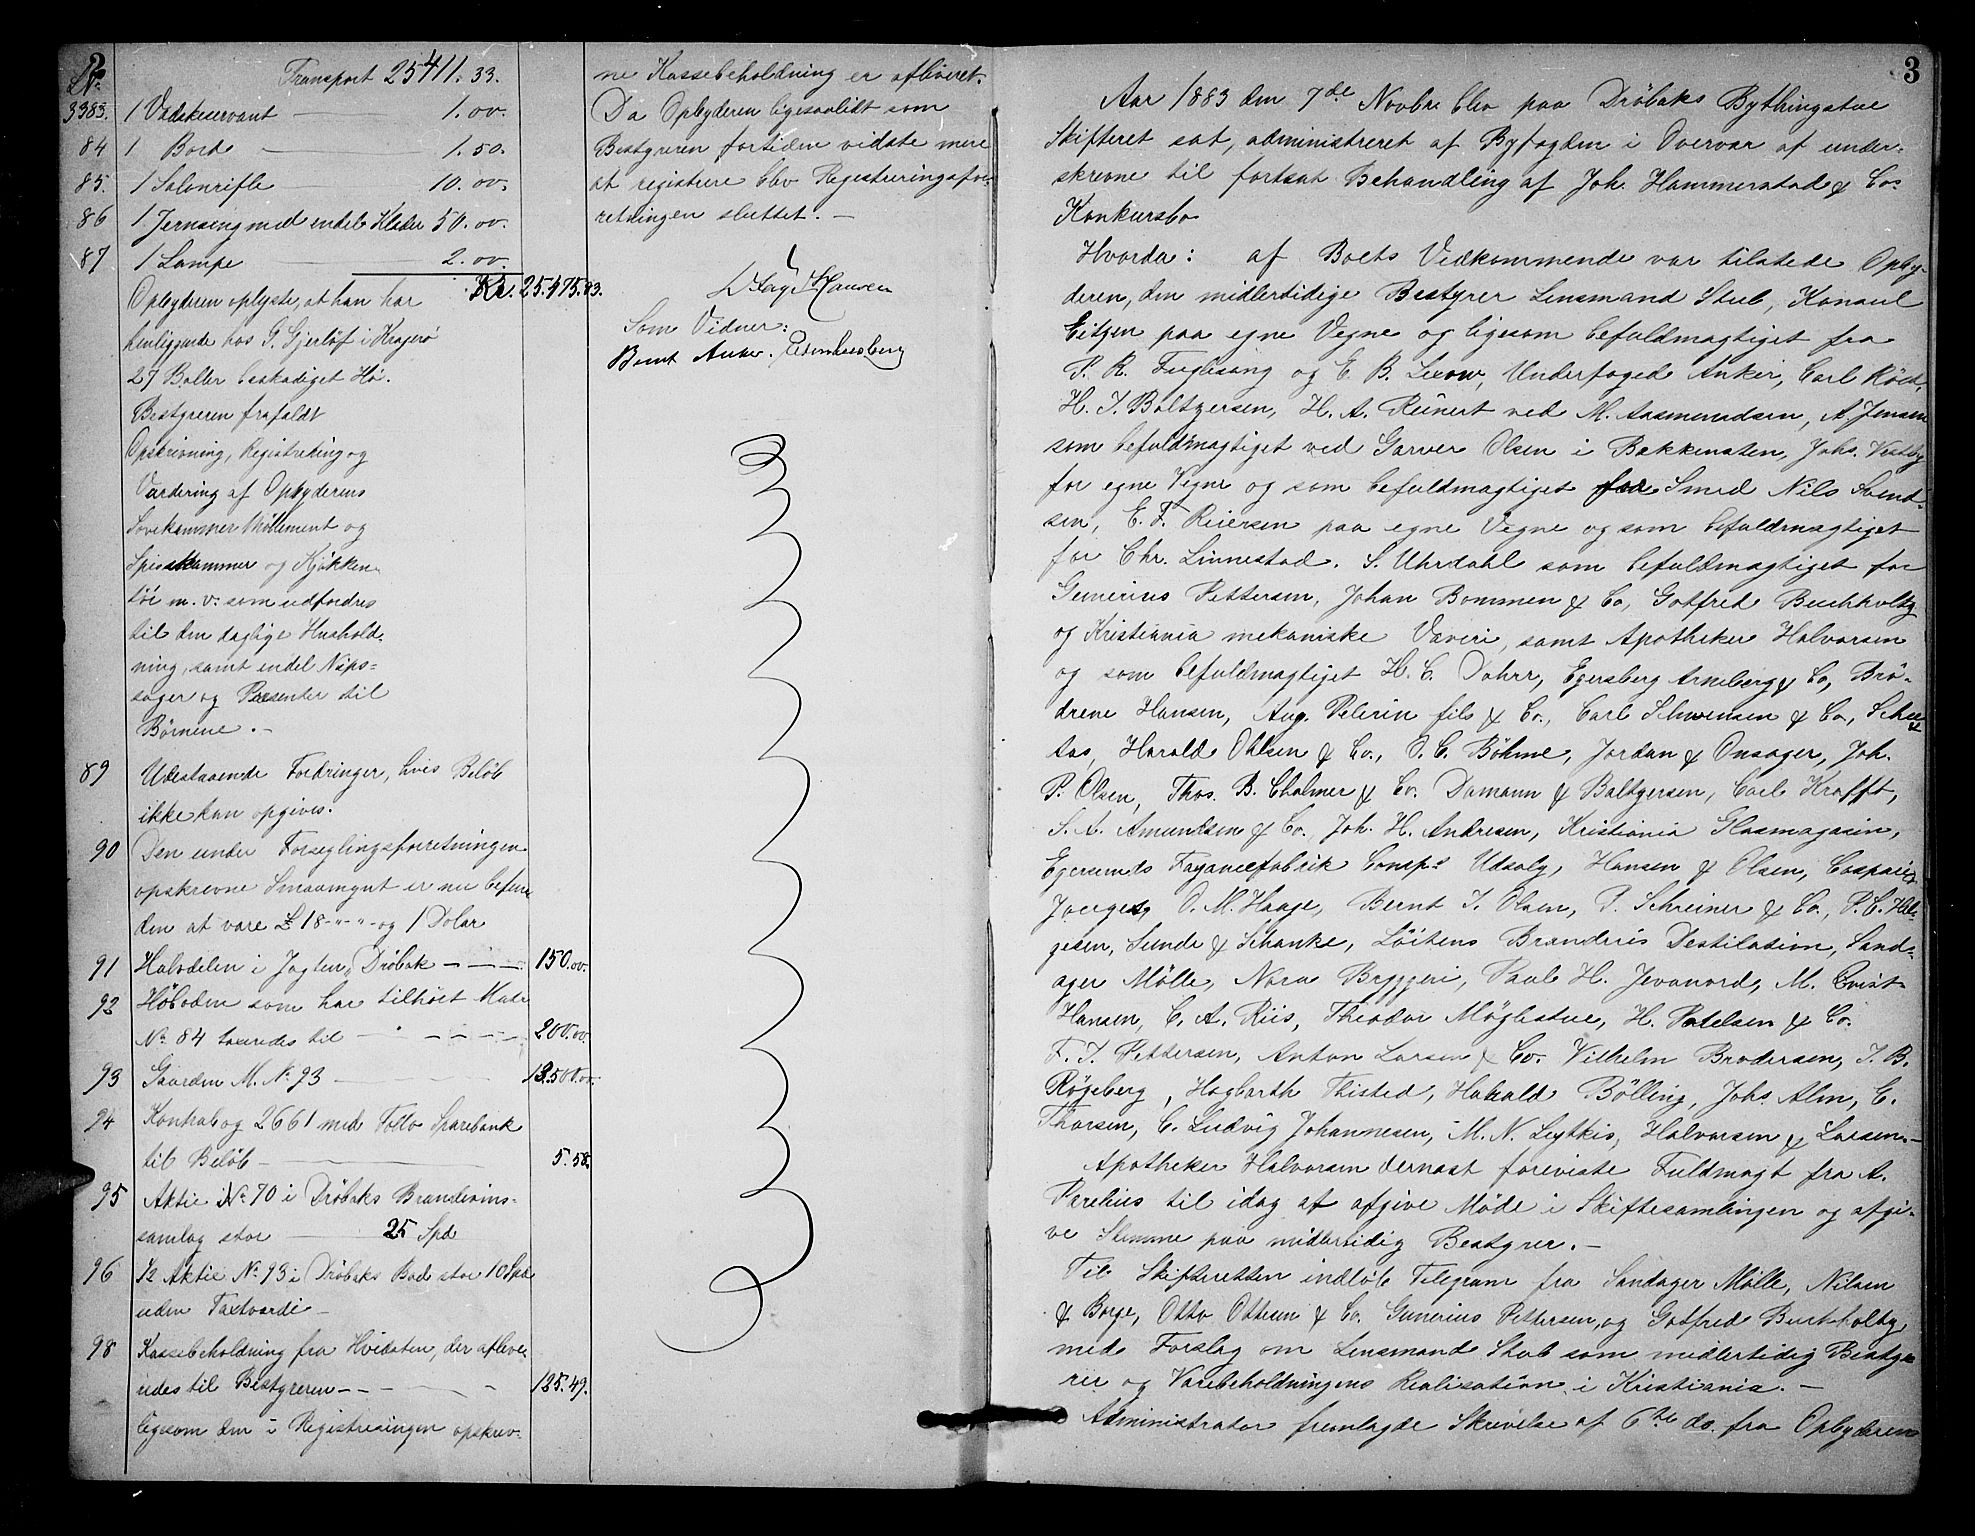 2
No
Transport 25411.33.
3383. 1 Vaskeservant 1.00.
84 1 Bord 1.50.
85. 1 Salonrifle 10.00.
86 1 Jernseng med endel Klæder 50.00.
87 1 Lampe 2.00.
Kr. 25.475.83.
Opbyderen oplyste, at han har
henliggende hos G. Gjerløf i Kragerø
27 Baller beskadiget Hø.
Bestyreren frafaldt
Opskrivning, Registrering og
Vurdering af Opbyderens
Sovekammer Møblement og
Spisekammer og Kjøkken-
tøi m.v. som udfordres
til den daglige Hushold-
ning, samt endel Nips-
sager og Præsenter til
Børnene.-
89 Udestaaende Fordringer, hvis Beløb
ikke kan opgives.
90 Den under Forseglingsforretningen
opskrevne Smaamynt er nu befun-
den at være £ 18-"-"- og 1 Dolar
91 Halvdelen i Jagten, Drøbak - - - 150.00.
92 Høboden som har tilhørt Matr
No. 84 taxeredes til - - - - 200.00.
93 Gaarden M. No. 93 13.500.00.
94 Kontrabog 2661 med Follo Sparebank
til Beløb 5.58.
95 Aktie No. 70 i Drøbaks Brændevins-
samlag stor 25 Spd
96 1/2 Aktie No. 93 i Drøbaks Bad stor 10 Spd
uden Taxtværdi-
98 Kassebeholdning fra Hvidsten, der afleve-
redes til Bestyreren - - - 125.49.
ligesom den i Registreringen opskrev-
ne Kassebeholdning er afleveret.
Da Opbyderen ligesaalidt som
Bestyreren fortiden vidste mere
at registrere blev Registreringsfor-
retningen sluttet.-
Hansen
Som Vidner:
Bernt Anker.
3
Aar 1883 den 7de Novbr blev paa Drøbaks Bythingstue
Skifteret sat, administreret af Byfogden i Overvær af under-
skrevne til fortsat Behandling af Joh. Hammerstad & Co.
Konkursbo
Hvorda: af Boets Vedkommende var tilstede Opby-
deren, den midlertidige Bestyrer Lensmand Stub, Konsul
Eitzen paa egne Vegne og ligesom befuldmægtiget fra
P. R. Fuglesang og E. B. Lexow, Underfoged Anker, Carl Röed,
H. J. Baltzersen, H. A. Reinert ved M. Aasmundsen, A. Jensen
som befuldmægtiget ved Garver Olsen i Bakkensten, Johs. Vestby
for egne Vegne og som befuldmægtiget for Smed Nils Svend-
sen, E. F. Reiersen paa egne Vegne og som befuldmægtiget
for Chr. Linnestad. S. Uhrdahl som befuldmægtiget for
Gunerius Pettersen, Johan Bommen & Co, Gotfred Buchholtz
og Kristiania mekaniske Væveri, samt Apotheker Halvorsen
og som befuldmægtiget H. C. Dahrr, Egersberg Arneberg & Co, Brö-
drene Hansen, Aug. Pelerin fils & Co., Carl Schwensen & Co,
Harald Ohlsen & Co., O. C. Böhme, Jordan & Onsager, Joh.
P. Olsen, Thos. B. Chalmer & Co. Damann & Baltzersen, Carl Krafft,
S. A. Amundsen & Co. Joh. H. Andresen, Kristiania Glasmagasin,
Egersunds Fayancefabrik Comps Udsalg, Hansen & Olsen,
O. M. Haage, Bernt J. Olsen, P. Schreiner & Co., P. C. Hel-
gesen, Sunde & Schanke, Löitens Brænderis Destilation, Sand-
ager Mølle, Nora Bryggeri, Paul H. Jevanord, M. Qvist
Hansen, C. A. Riis, Theodor Møglestue, H. Petelsen & Co.
F. J. Pettersen, Anton Larsen & Co. Vilhelm Brodersen, J. B.
Røgeberg, Hagbarth Thisted, Harald Bölling, Johs. Alm, C.
Thorsen, C. Ludvig Johannesen, M. N. Leytkis, Halvorsen & Larsen.-
Apotheker Halvorsen dernæst foreviste Fuldmagt fra A.
Perelius til idag at afgive Møde i Skiftesamlingen og afgi-
ve Stemme paa midlertidig Bestyrer.-
Til Skifteretten indløb Telegram fra Sandager Mølle, Nilsen
& Borge, Otto Ottesen & Co. Gunerius Pettersen, og Gotfred Buchholtz
med Forslag om Lensmand Stub som midlertidig Besty-
rer og Varebeholdningens Realisation i Kristiania.-
Administrator fremlagde Skrivelse af 6te ds. fra Opbyderen